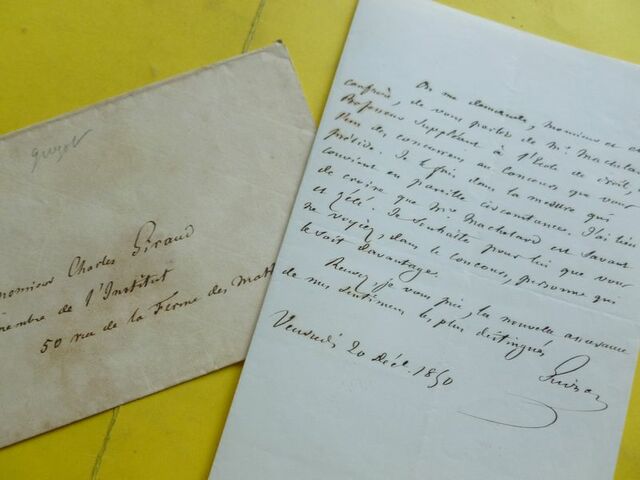 Guizot
Monsieur Charles Giraud
membre de l'Institut
50 rue de la Ferme des Math
On me demande, Monsieur et
confrère, de vous parler de Mr. Machelard
Professeur suppléant à l'École de droit,
l'un des concurrens au concours que vous
présidez. Je le fais dans la mesure qui
convient en pareille circonstance. J'ai lieu
de croire que Mr. Machelard est savant
et zélé. Je souhaite pour lui que vous
ne voyiez, dans le concours, personne qui
le soit davantage.
Recevez, je vous prie, la nouvelle assurance
de mes sentimens les plus distingués
Guizot
Vendredi 20 Déc. 1850